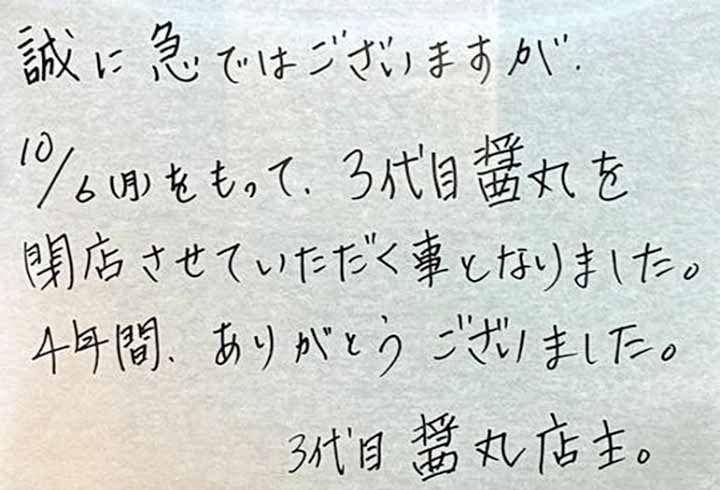 誠に急ではございますが、
10/6(月)をもって、3代目醤丸を
閉店させていただく事となりました。
4年間、ありがとうございました。
3代目醤丸店主。